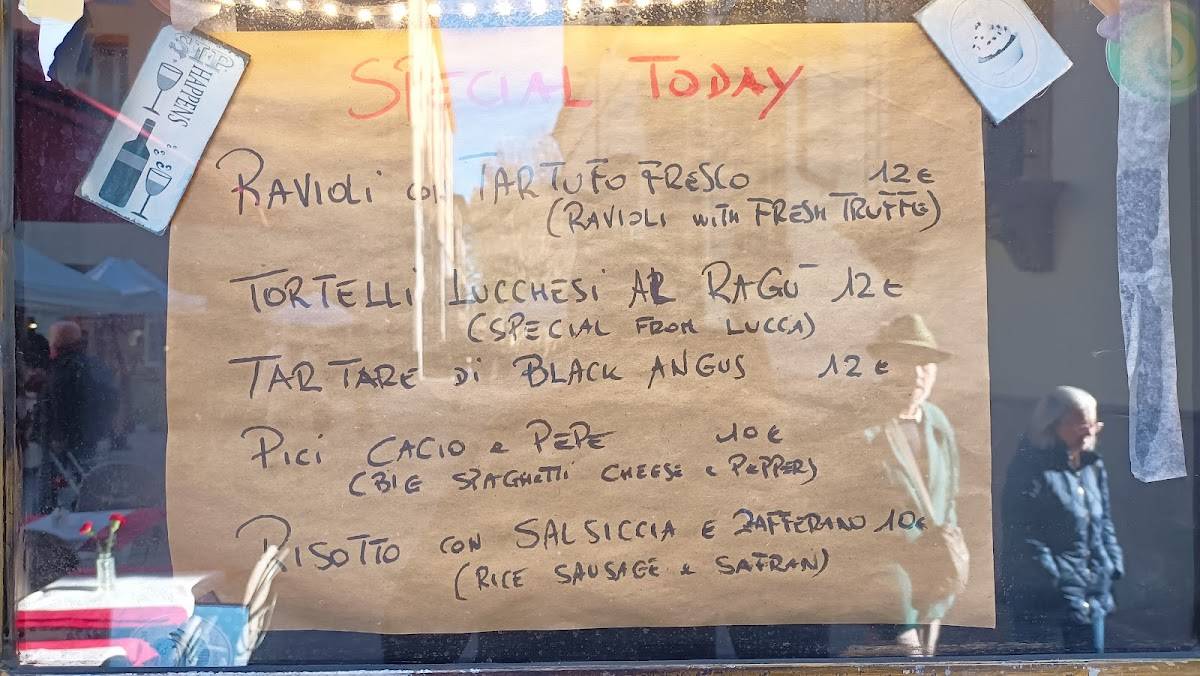 HAPPENS
SPECIAL TODAY
RAVIOLI CON TARTUFO FRESCO 12€
(RAVIOLI WITH FRESH TRUFFE)
TORTELLI LUCCHESI AL RAGÙ 12€
(SPECIAL FROM LUCCA)
TARTARE DI BLACK ANGUS 12€
PICI CACIO e PEPE 10€
(BIG SPAGHETTI CHEESE e PEPPER)
RISOTTO CON SALSICCIA E ZAFFERANO 10€
(RICE SAUSAGE e SAFRAN)